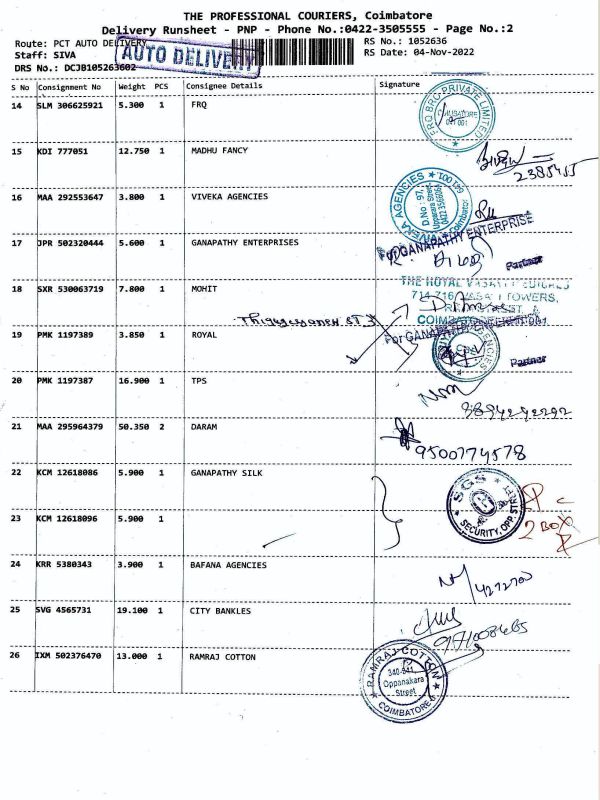 THE PROFESSIONAL COURIERS, Coimbatore
Delivery Runsheet - PNP - Phone No.:0422-3505555 - Page No.:2
Route: PCT AUTO DELIVERY
AUTO DELIVERY
RS No.: 1052636
Staff: SIVA
RS Date: 04-Nov-2022
DRS No.: DCJB105263602
S No Consignment No Weight PCS Consignee Details Signature
14 SLM 306625921 5.300 1 FRQ
FRQ BRO PRIVATE LIMITED
15 KDI 777051 12.750 1 MADHU FANCY
2385455
16 MAA 292553647 3.800 1 VIVEKA AGENCIES
VIVEKA AGENCIES
D.No: 97,
Coimbatore
641 001.
17 JPR 502320444 5.600 1 GANAPATHY ENTERPRISES
For GANAPATHY ENTERPRISE
Partner
18 SXR 530063719 7.800 1 MOHIT
TOWERS,
19 PMK 1197389 3.850 1 ROYAL
Partner
20 PMK 1197387 16.900 1 TPS
9894242292
21 MAA 295964379 50.350 2 DARAM
9500774578
22 KCM 12618086 5.900 1 GANAPATHY SILK
SGS
SECURITY, OPP. STREET
2 BOX
23 KCM 12618096 5.900 1
24 KRR 5380343 3.900 1 BAFANA AGENCIES
4272700
25 SVG 4565731 19.100 1 CITY BANKLES
26 IXM 502376470 13.000 1 RAMRAJ COTTON
RAMRAJ COTTON
340-341
Oppanakara
Street
COIMBATORE